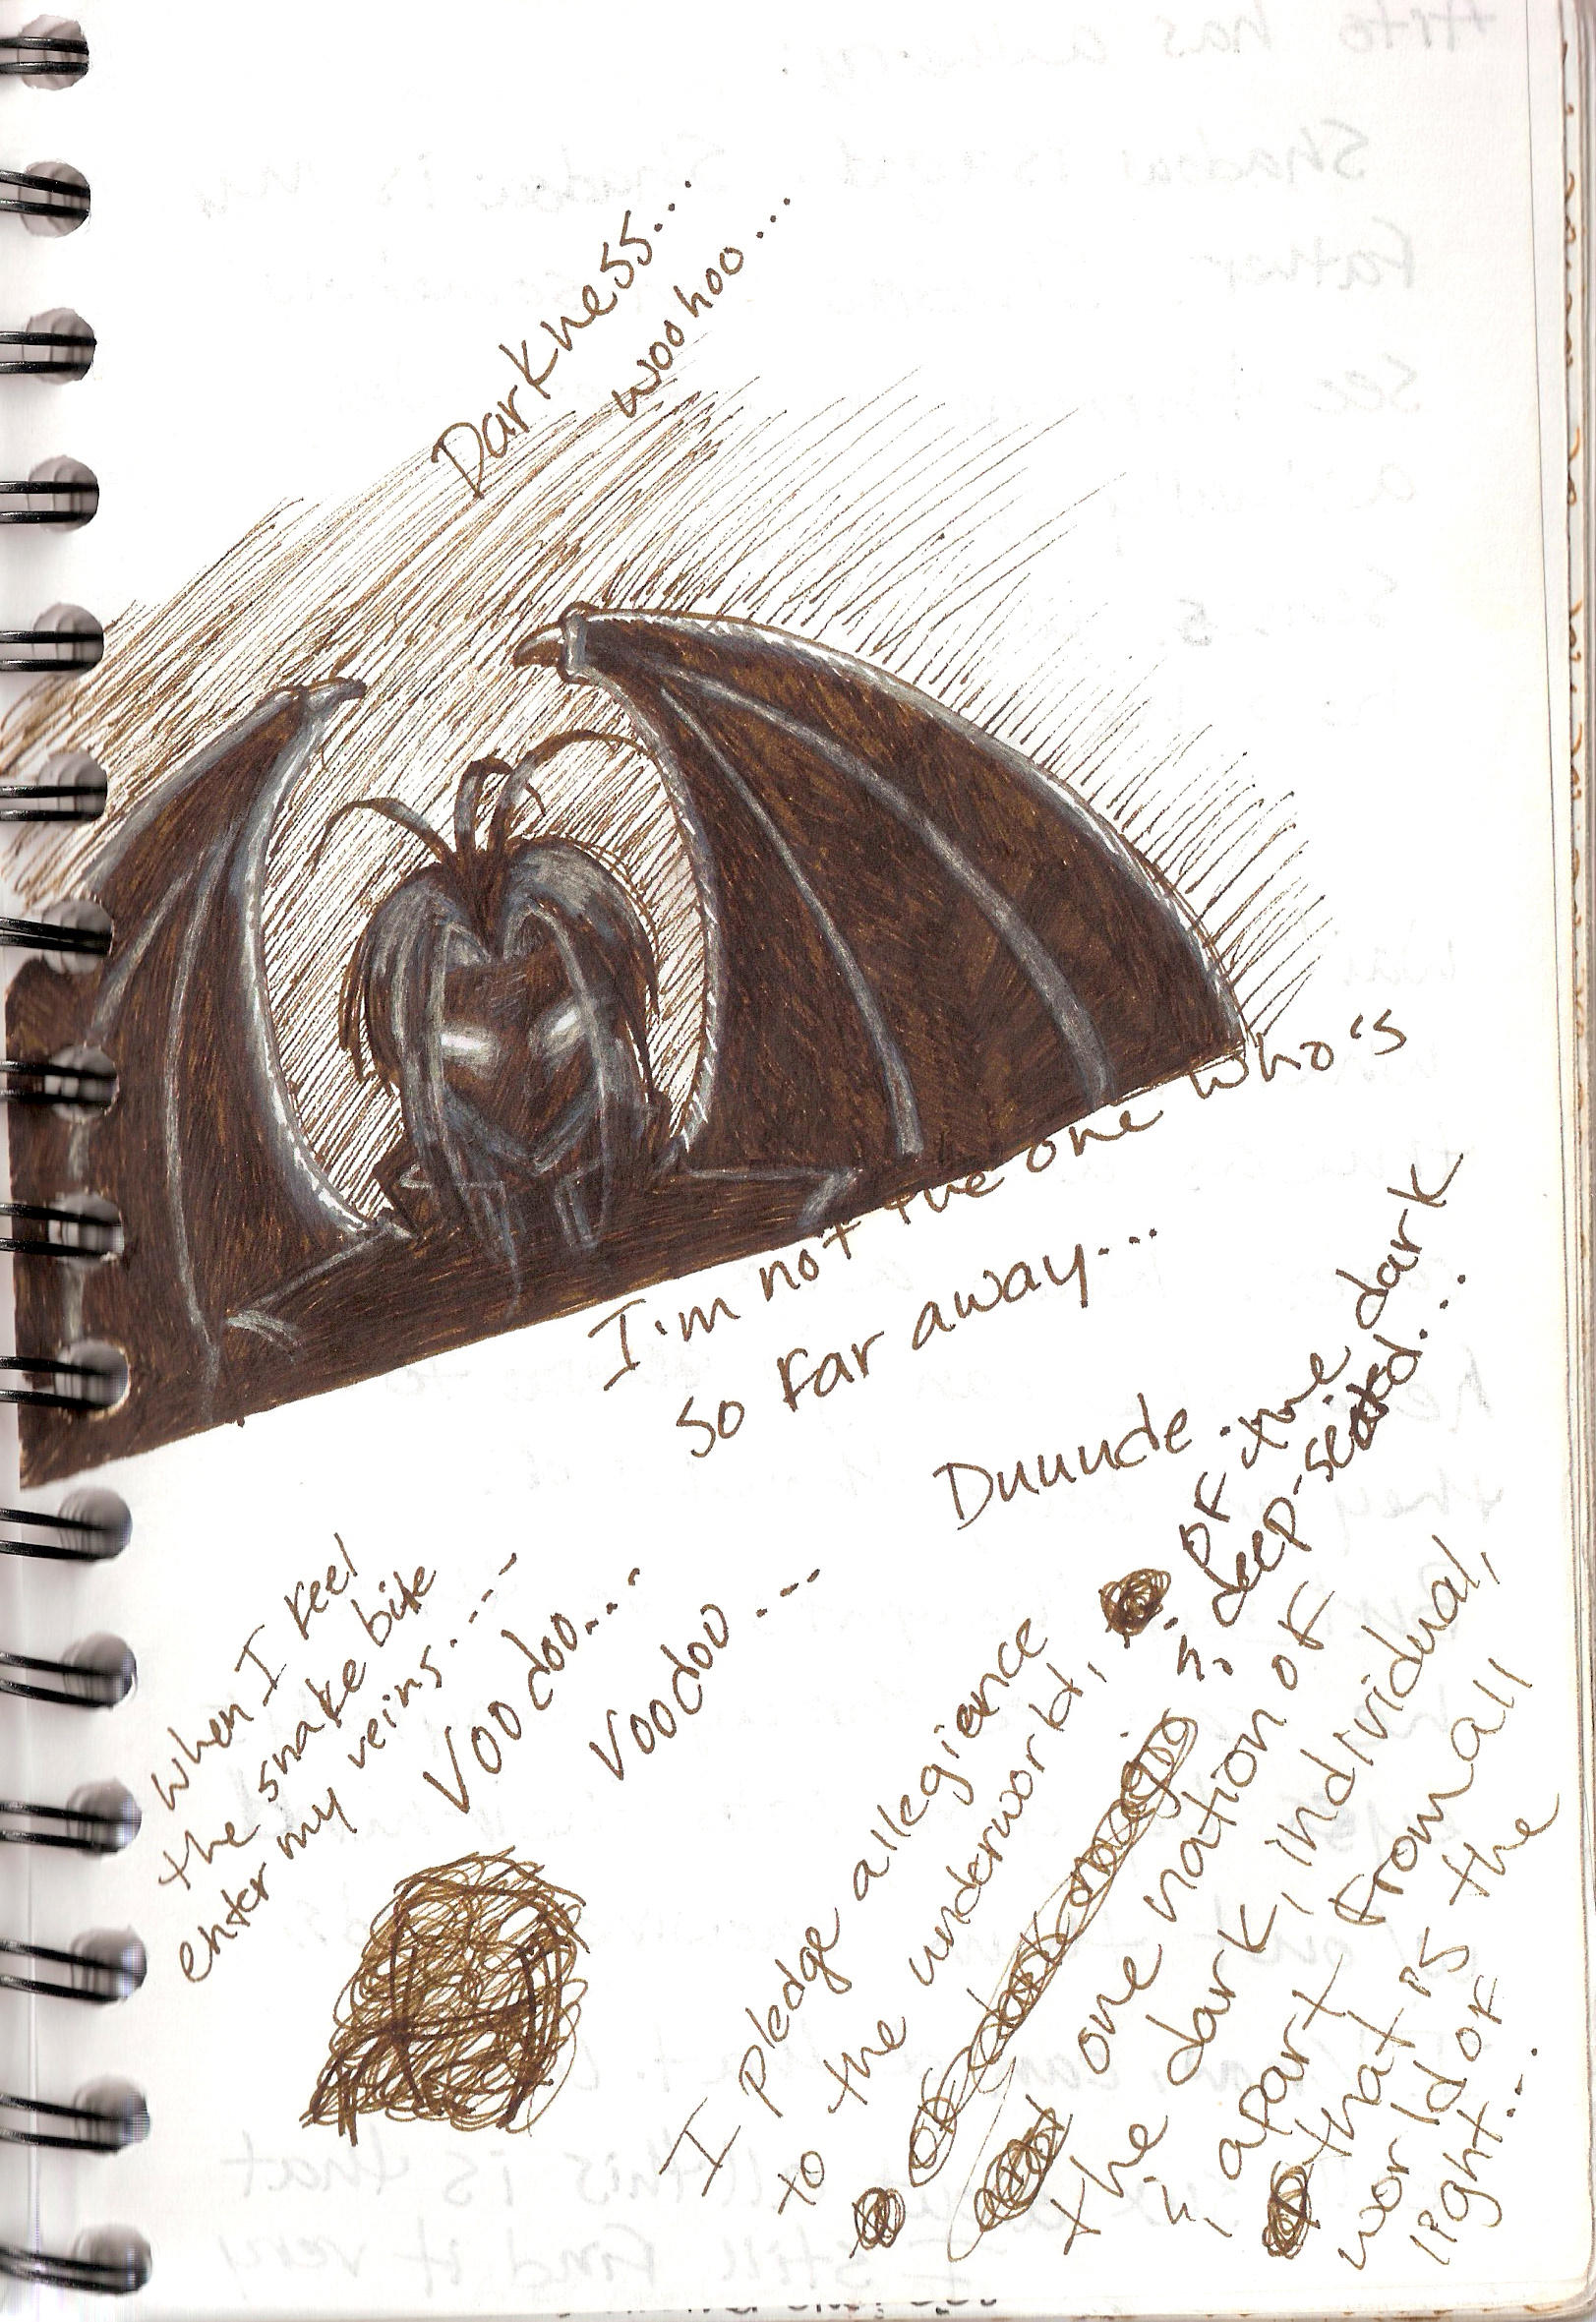 Darkness...
woohoo...
I'm not the one who's
so far away...
Duuude..
When I feel
the snake bite
enter my veins....
Voodoo...
Voodoo...
I pledge allegience
to the underworld,
of the dark
n, deep-seated...
one nation of
the dark, individual,
n, apart from all
that is the
world of
light...